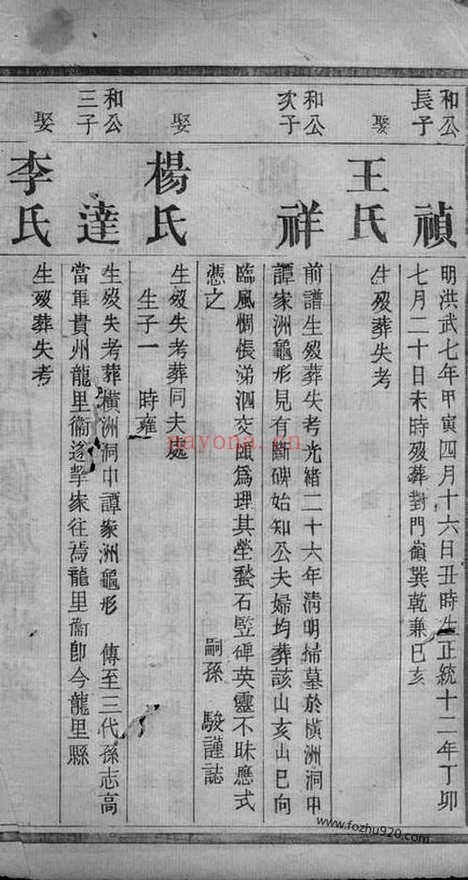 和公
長子
禎
明洪武七年甲寅四月十六日丑時生正統十二年丁卯
七月二十日未時歿葬對門嶺巽乾兼巳亥
娶
王氏
生歿葬失考
和公
次子
祥
前譜生歿葬失考光緒二十六年淸明掃墓於橫洲洞中
譚家洲龜形見有斷碑始知公夫婦均葬該山亥山巳向
臨風惆悵涕泗交頤爲理其塋甃石竪碑英靈不昧應式
憑之
嗣孫 駿謹誌
娶
楊氏
生歿失考葬同夫處
生子一 時雍
和公
三子
達
生歿失考葬橫洲洞中譚家洲龜形 傳至三代孫志高
當軍貴州龍里衞遂挈家往焉龍里衞卽今龍里縣
娶
李氏
生歿葬失考
nayona.cn
www.fozhu920.com